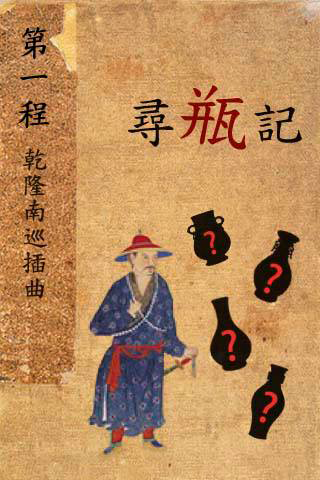 第一程 乾隆南巡插曲
尋瓶記
?
?
?
?